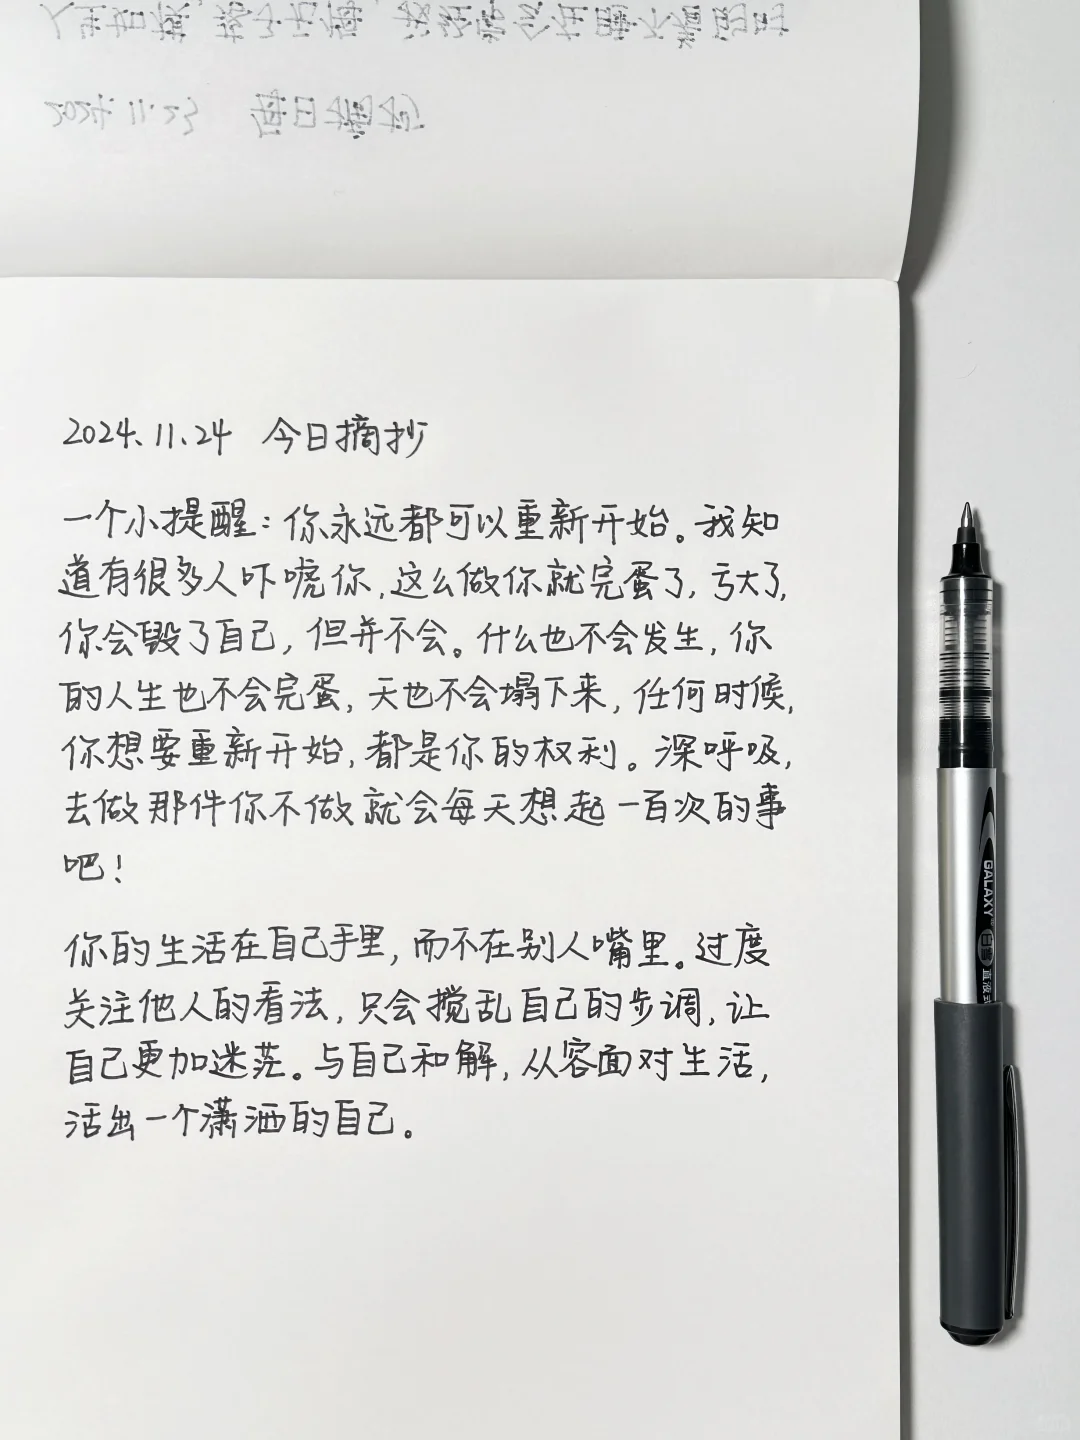 2024.11.23 每日摘抄
2024.11.24 今日摘抄
一个小提醒：你永远都可以重新开始。我知
道有很多人吓唬你,这么做你就完蛋了,亏大了,
你会毁了自己,但并不会。什么也不会发生,你
的人生也不会完蛋,天也不会塌下来,任何时候,
你想要重新开始,都是你的权利。深呼吸,
去做那件你不做就会每天想起一百次的事
吧!
你的生活在自己手里,而不在别人嘴里。过度
关注他人的看法,只会搅乱自己的步调,让
自己更加迷茫。与自己和解,从容面对生活,
活出一个潇洒的自己。
GALAXY 白雪 直液式